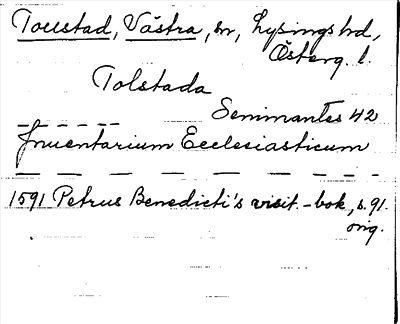 Tollstad, Västra, sn, Lysings hd,
Österg. l.
Tolstada
Seminantes 42
Inuentarium Ecclesiasticum
1591 Petrus Benedicti's visit.-bok, s. 91.
orig.